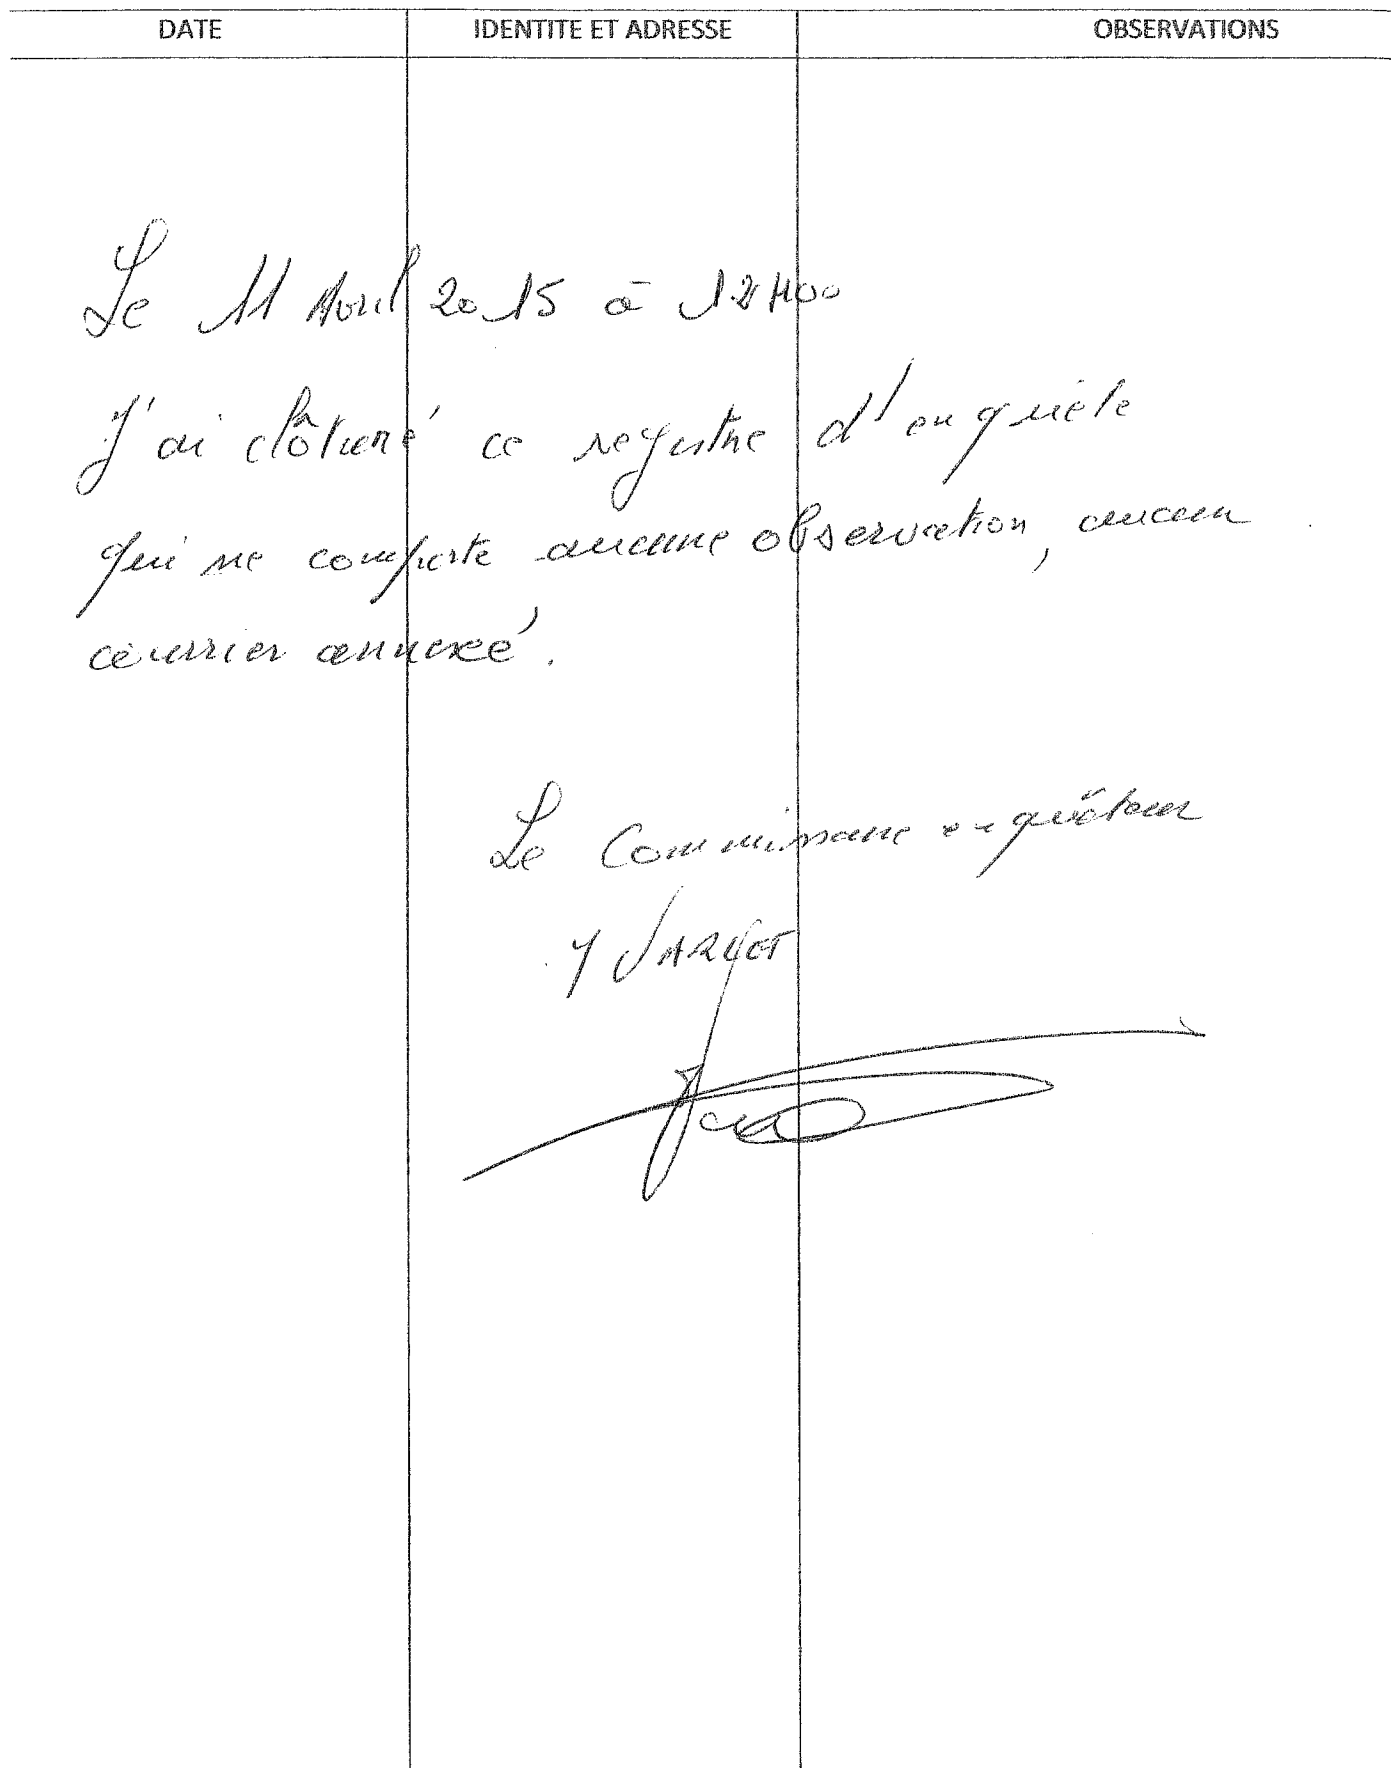 DATE IDENTITE ET ADRESSE OBSERVATIONS
Le 11 Avril 2015 à 12H00
J'ai clôturé ce registre d'enquête
qui ne comporte aucune observation, aucun
courrier annexé.
Le Commissaire enquêteur